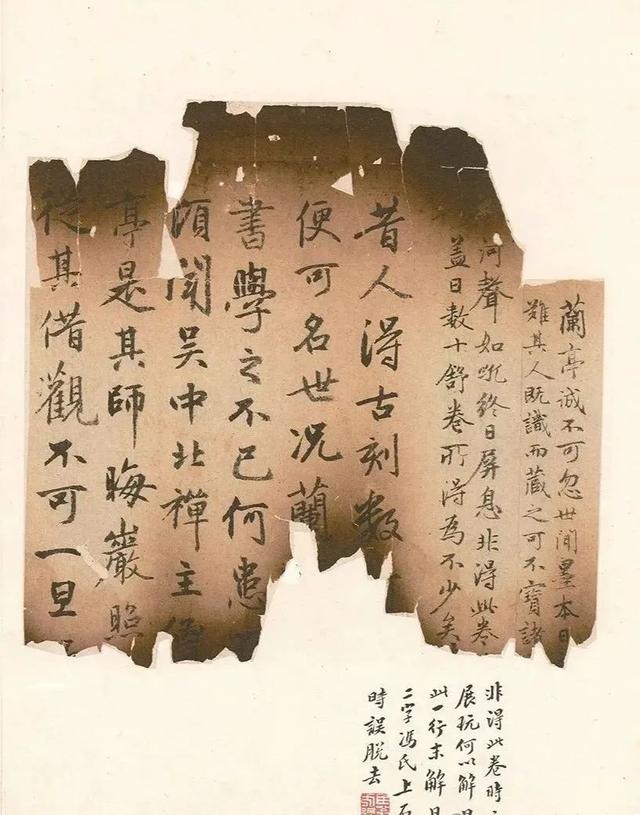 蘭亭誠不可忽世間墨本日
難其人既識而藏之可不寶諸
河聲如吼終日屏息非得此卷
蓋日數十舒卷所得為不少矣
昔人得古刻數
便可名世況蘭
書學之不已何患
頃聞吳中北禪主僧
亭是其師晦巖照
從其借觀不可一旦
非得此卷時
展玩何以解日
此一行末解日
二字馮氏上石
時誤脫去